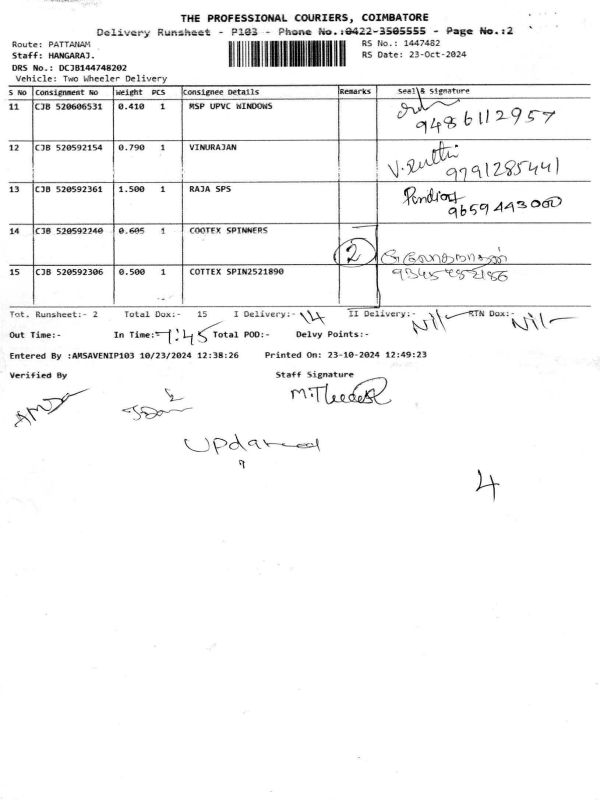 THE PROFESSIONAL COURIERS, COIMBATORE
Delivery Runsheet - P103 - Phone No.:0422-3505555 - Page No.:2
Route: PATTANAM RS No.: 1447482
Staff: HANGARAJ. RS Date: 23-Oct-2024
DRS No.: DCJB144748202
Vehicle: Two Wheeler Delivery
S No Consignment No Weight PCS Consignee Details Remarks Seal & signature
11 CJB 520606531 0.410 1 MSP UPVC WINDOWS
9486112957
12 CJB 520592154 0.790 1 VINURAJAN
9791285441
13 CJB 520592361 1.500 1 RAJA SPS
9659443000
14 CJB 520592240 0.605 1 COOTEX SPINNERS
2
15 CJB 520592306 0.500 1 COTTEX SPIN2521890
Tot. Runsheet:- 2 Total Dox:- 15 I Delivery:- 14 II Delivery:- Nil RTN Dox:- Nil
Out Time:- In Time:- 7:45 Total POD:- Delvy Points:-
Entered By :AMSAVENIP103 10/23/2024 12:38:26 Printed On: 23-10-2024 12:49:23
Verified By Staff Signature
Updated
4